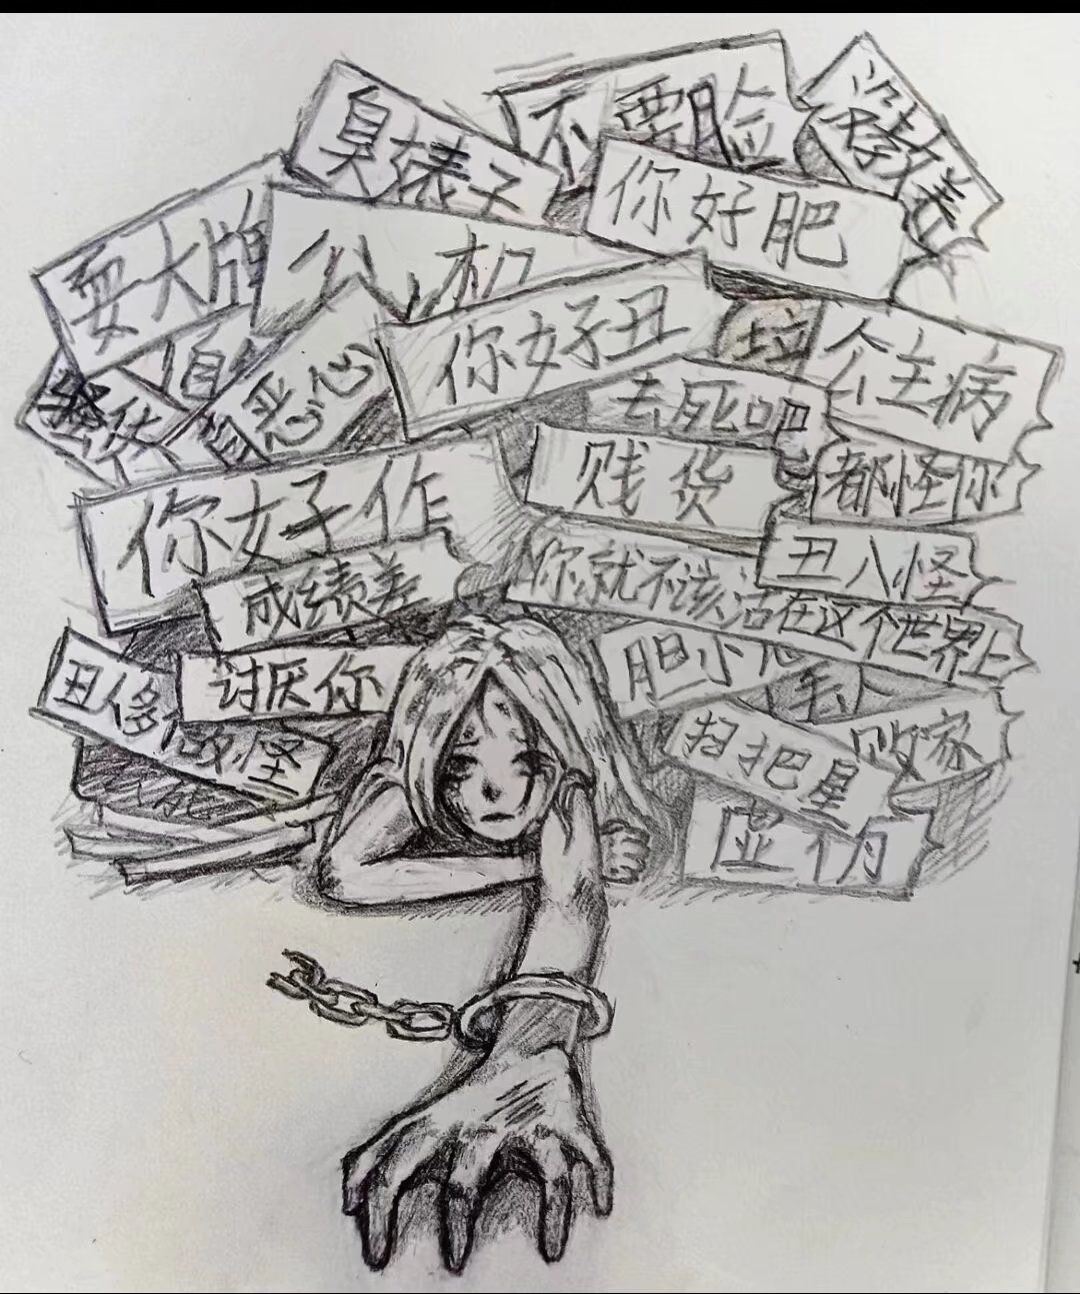 臭婊子
不要脸
没教养
你好肥
耍大牌
公 机
你好丑
垃
公主病
自
恶心
去死吧
贱货
都怪你
你好作
丑八怪
成绩差
你就不该活在这个世界上
胆小
讨厌你
丑
多
怪
扫把星
败家
虚伪